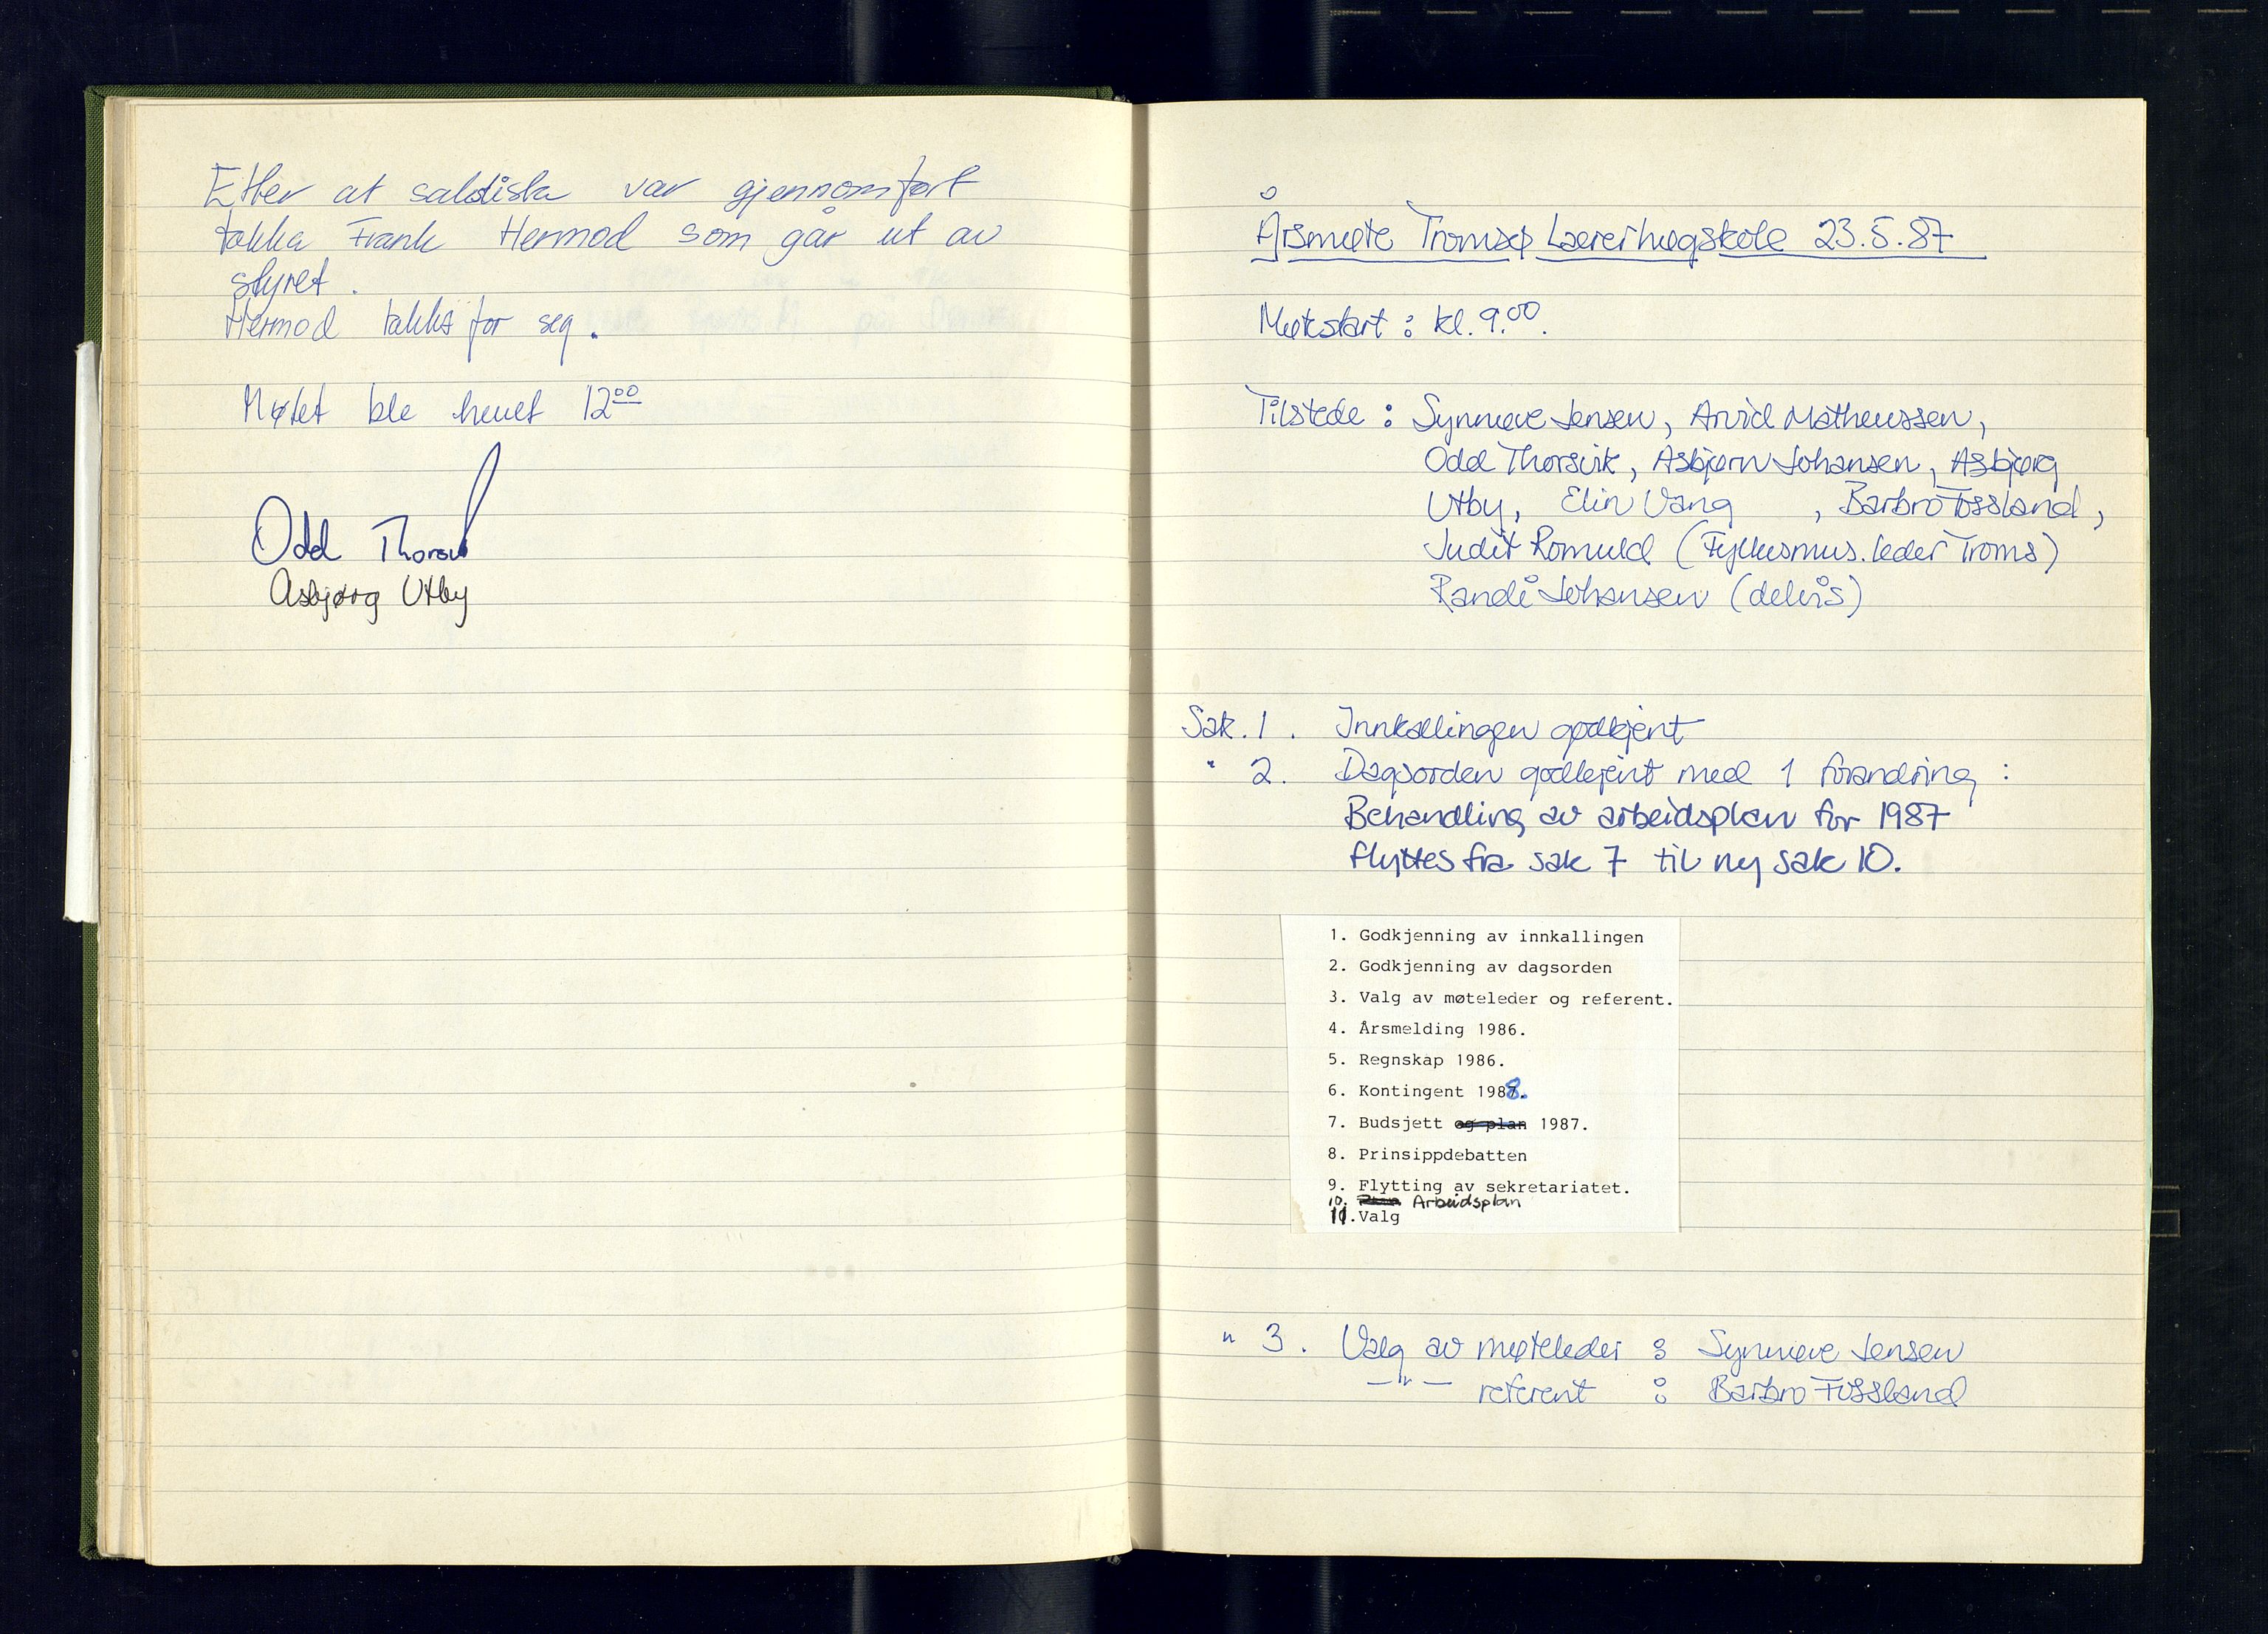 Etter at saklista var gjennomført
takka Frank Hermod som går ut av
styret.
Hermod takka for seg.
Møtet ble hevet 12⁰⁰
Odd Thorsvik
Asbjørg Utby
Årsmøte Tromsø Lærerhøgskole 23.5.87
Møtestart : kl. 9.⁰⁰.
Tilstede : Synnøve Jensen, Arvid Matheussen,
Odd Thorsvik, Asbjørn Johansen, Asbjørg
Utby, Elin Vang , Barbro Fossland,
Judit Romuld (Fylkesmus. leder Troms)
Randi Johansen (delvis)
Sak. 1. Innkallingen godkjent
" 2. Dagsorden godkjent med 1 forandring :
Behandling av arbeidsplan for 1987
flyttes fra sak 7 til ny sak 10.
1. Godkjenning av innkallingen
2. Godkjenning av dagsorden
3. Valg av møteleder og referent.
4. Årsmelding 1986.
5. Regnskap 1986.
6. Kontingent 1988.
7. Budsjett og plan 1987.
8. Prinsippdebatten
9. Flytting av sekretariatet.
10. Plan Arbeidsplan
11. Valg
" 3. Valg av møteleder : Synnøve Jensen
—"— referent : Barbro Fossland